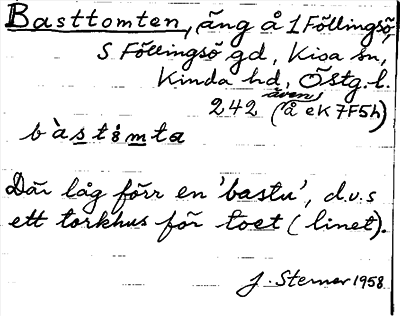 Basttomten, äng å 1 Föllingsö,
S Föllingsö gd, Kisa sn,
Kinda hd, Östg. l.
även
242 (å ek 7F5h)
bàstomta
Där låg förr en 'bastu', d.v.s
ett torkhus för toet (linet).
J. Sterner 1958